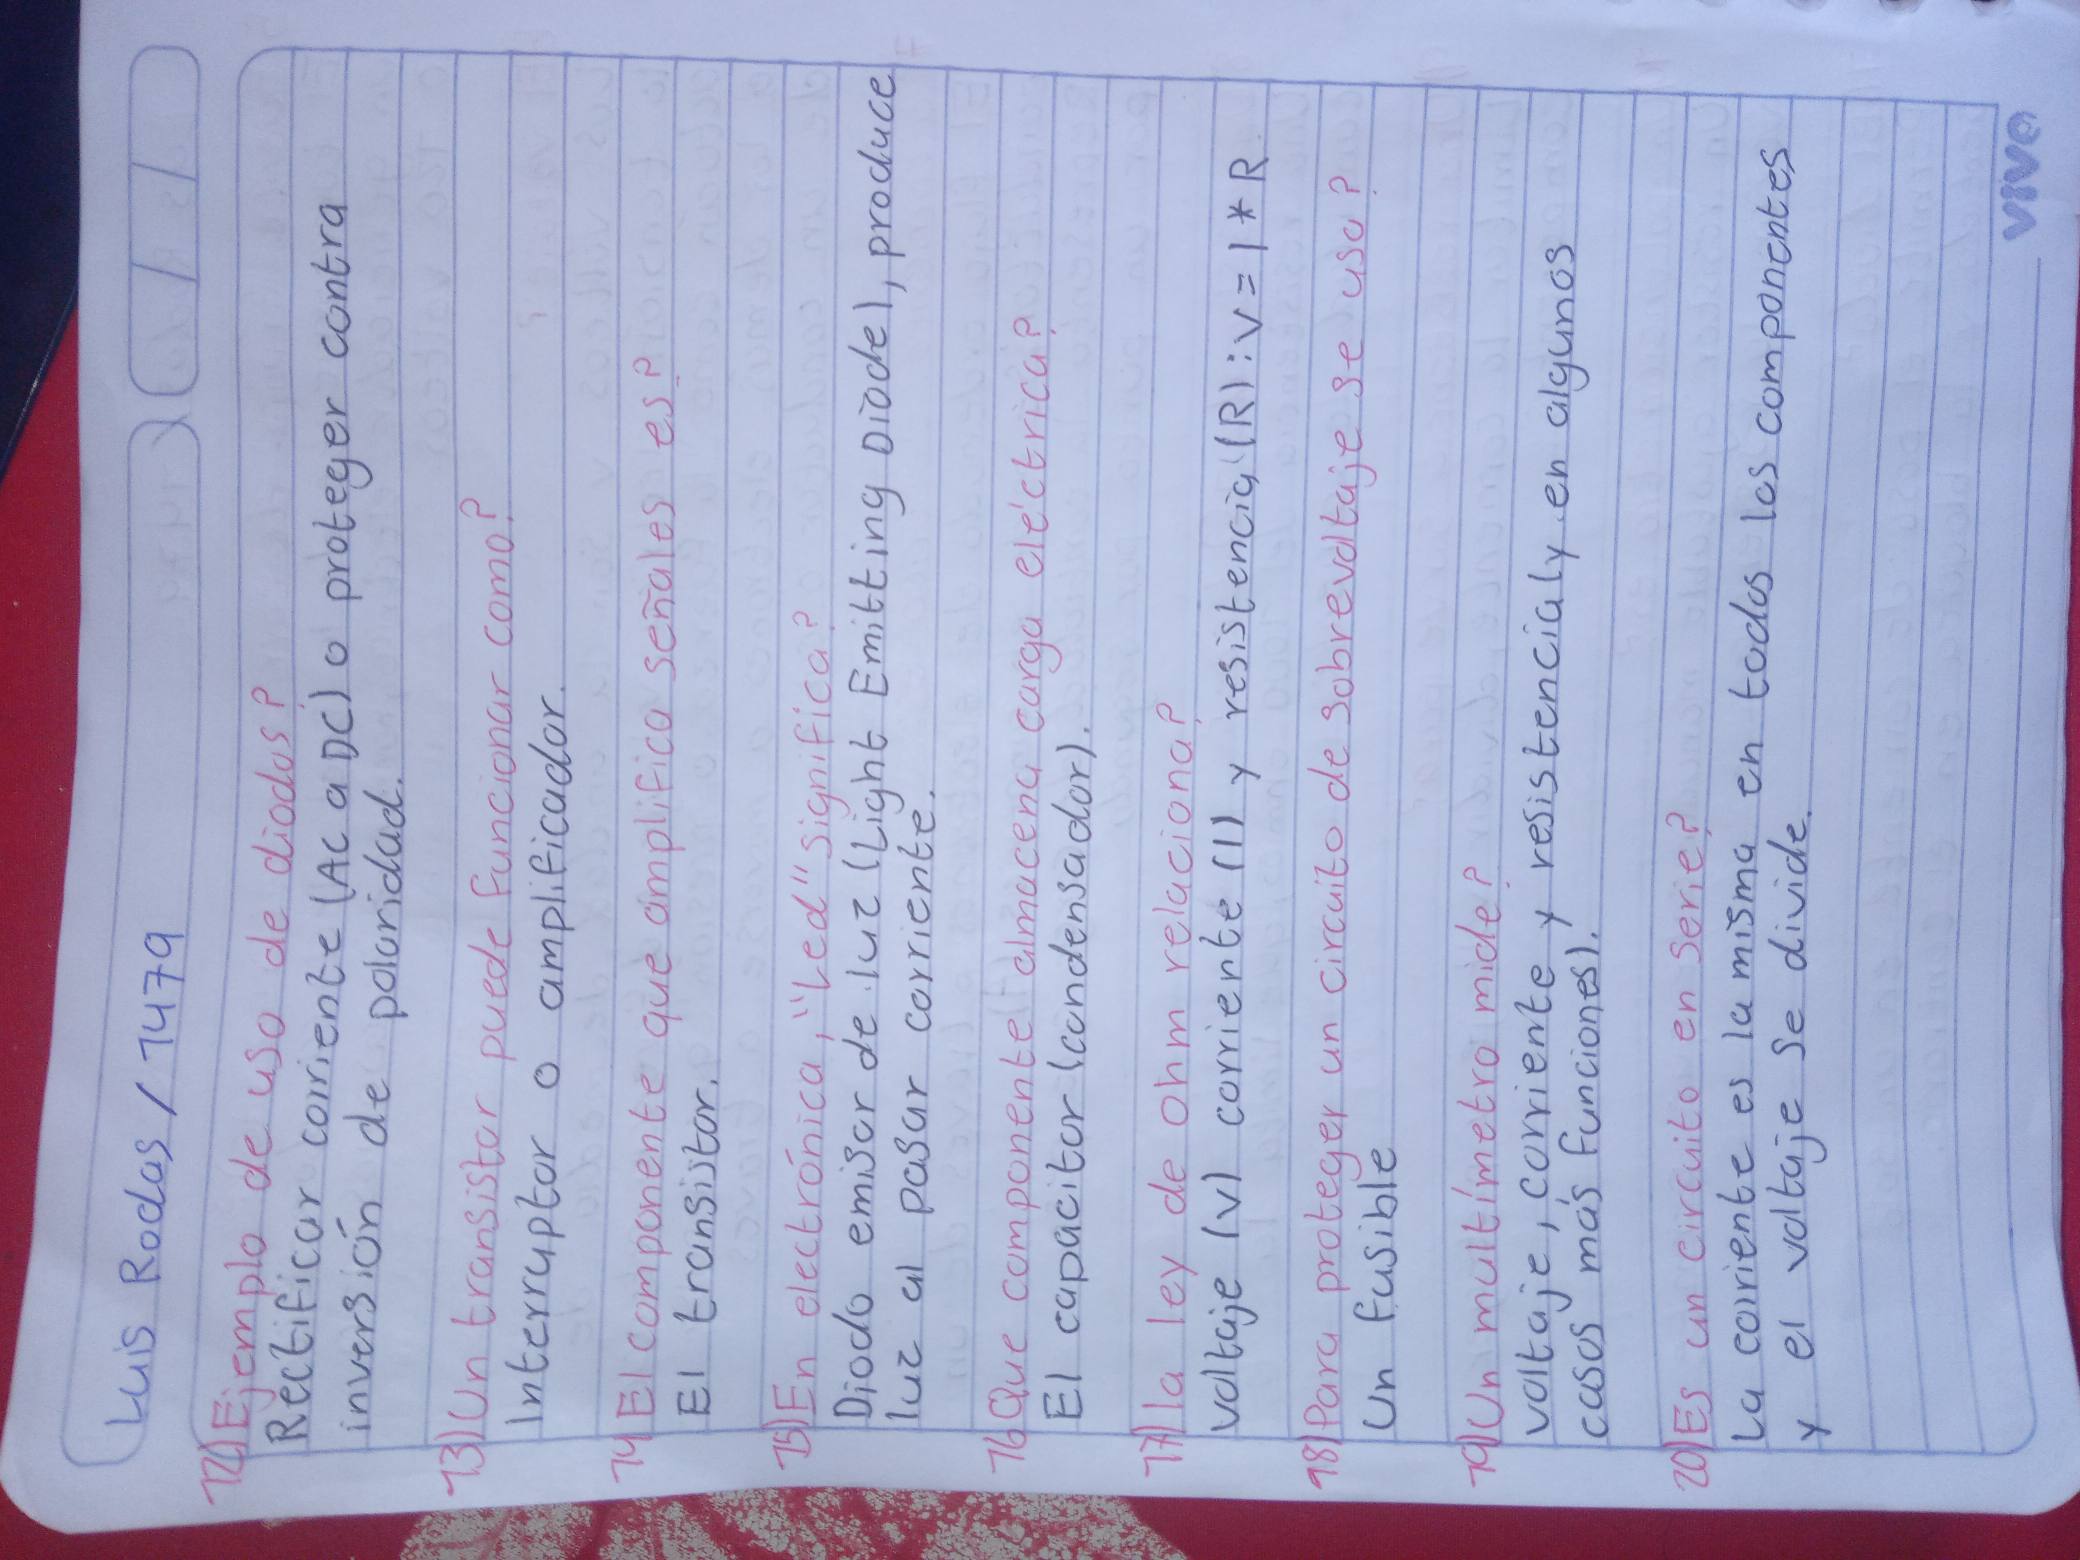 Luis Rodas / 1479
12) Ejemplo de uso de diodos?
Rectificar corriente (AC a DC) o proteger contra
inversión de polaridad.
13) Un transistor puede funcionar como?
Interruptor o amplificador.
14) El componente que amplifica señales es?
El transistor.
15) En electrónica, "Led" significa?
Diodo emisor de luz (Light Emitting Diode), produce
luz al pasar corriente.
16) Que componente almacena carga eléctrica?
El capacitor (condensador).
17) la ley de Ohm relaciona?
Voltaje (V) corriente (I) y resistencia (R): V = I * R.
18) Para proteger un circuito de sobrevoltaje se usa?
Un fusible
19) Un multímetro mide?
Voltaje, corriente y resistencia (y en algunos
casos más funciones).
20) Es un circuito en serie?
La corriente es la misma en todos los componentes
y el voltaje se divide.
vivo